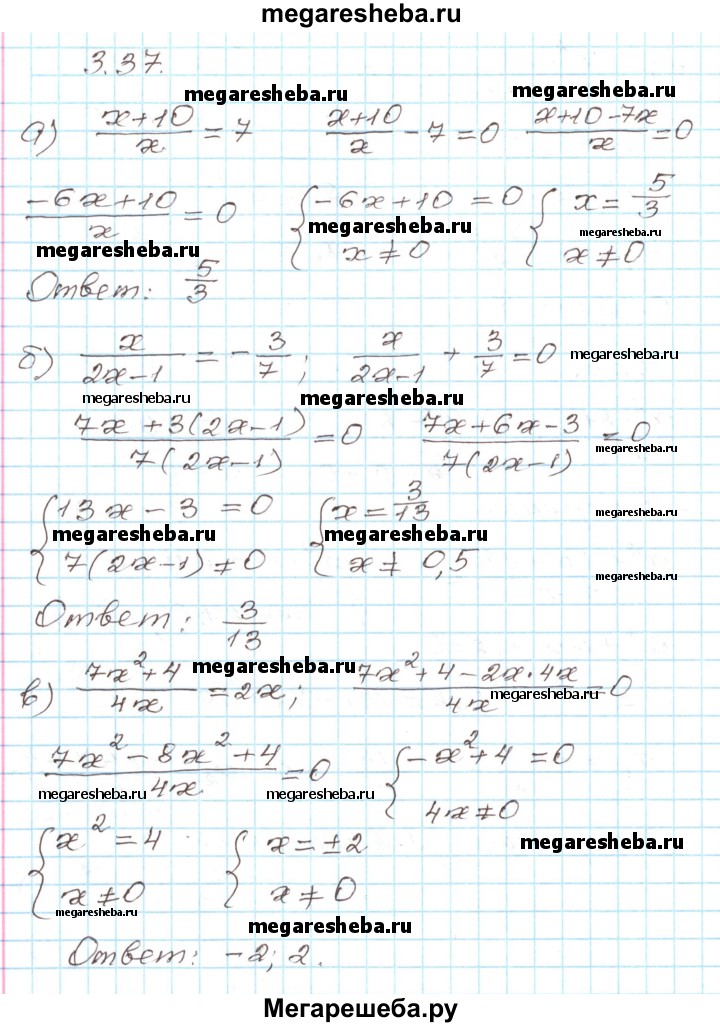 megaresheba.ru
3.37.
megaresheba.ru megaresheba.ru
а) (x+10)/x = 7 (x+10)/x − 7 = 0 (x+10−7x)/x = 0
(−6x+10)/x = 0 { −6x+10 = 0 { x = 5/3
megaresheba.ru megaresheba.ru megaresheba.ru
x ≠ 0 x ≠ 0
Ответ: 5/3
б) x/(2x−1) = −3/7; x/(2x−1) + 3/7 = 0 megaresheba.ru
megaresheba.ru megaresheba.ru
(7x+3(2x−1))/(7(2x−1)) = 0 (7x+6x−3)/(7(2x−1)) = 0
megaresheba.ru
{ 13x − 3 = 0 { x = 3/13 megaresheba.ru
megaresheba.ru megaresheba.ru
7(2x−1) ≠ 0 x ≠ 0,5
megaresheba.ru
Ответ: 3/13
в) (7x²+4)/4x = 2x; (7x²+4−2x·4x)/4x = 0
megaresheba.ru megaresheba.ru
(7x²−8x²+4)/4x = 0 { −x²+4 = 0
megaresheba.ru megaresheba.ru
4x ≠ 0
{ x² = 4 { x = ±2 megaresheba.ru
x ≠ 0 x ≠ 0
megaresheba.ru
megaresheba.ru
Ответ: −2; 2.
Мегарешеба.ру